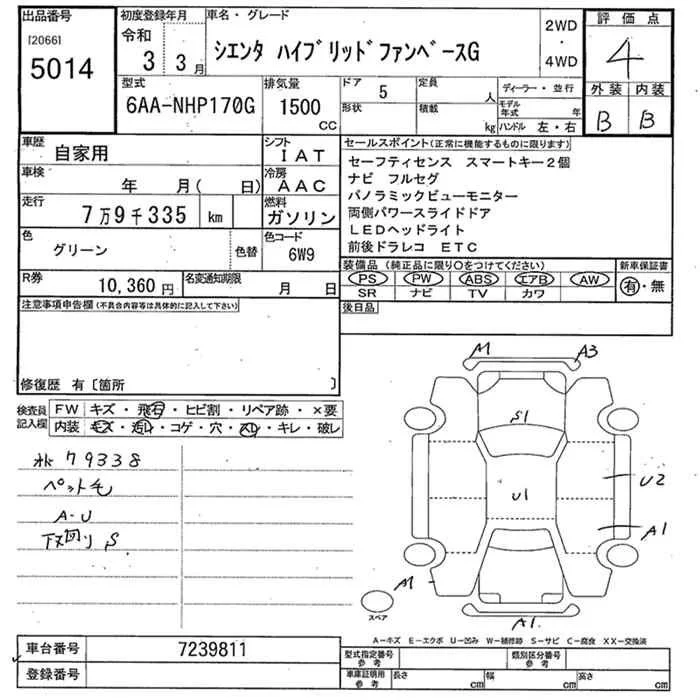 出品番号
[2066]
5014
初度登録年月
令和
3 3月
車名・グレード
シエンタ ハイブリッドファンベースG
2WD
・
4WD
評価点
4
外装 内装
B B
型式
6AA-NHP170G
排気量
1500
CC
ドア 5
形状
定員 人
積載 kg
ディーラー・並行
モデル年式 年
ハンドル 左・右
車歴
自家用
シフト
IAT
車検
年 月( 日)
冷房
AAC
走行
7万9千335 km
燃料
ガソリン
色
グリーン
色替
色コード
6W9
R券
10,360円
名変通知期限
月 日
セールスポイント(正常に機能するものに限ります)
セーフティセンス スマートキー2個
ナビ フルセグ
パノラミックビューモニター
両側パワースライドドア
LEDヘッドライト
前後ドラレコ ETC
装備品 (純正品に限り○をつけてください)
新車保証書
PS PW ABS エアB AW
SR ナビ TV カワ
有・無
後日品
注意事項申告欄(不具合内容等は具体的に記入して下さい)
修復歴 有〔箇所 〕
検査員
記入欄
FW キズ・飛石・ヒビ割・リペア跡・×要
内装 キズ・汚レ・コゲ・穴・スレ・キレ・破レ
79338
ペット毛
A-U
下回りS
M A3
S1
U1
U2
A1
A1
スペア
A-キズ E-エクボ U-凹み W-補修跡 S-サビ C-腐食 XX-交換済
車台番号 7239811
登録番号
型式指定番号
参考
類別区分番号
参考
車庫証明用
参考
長さ cm
幅 cm
高さ cm